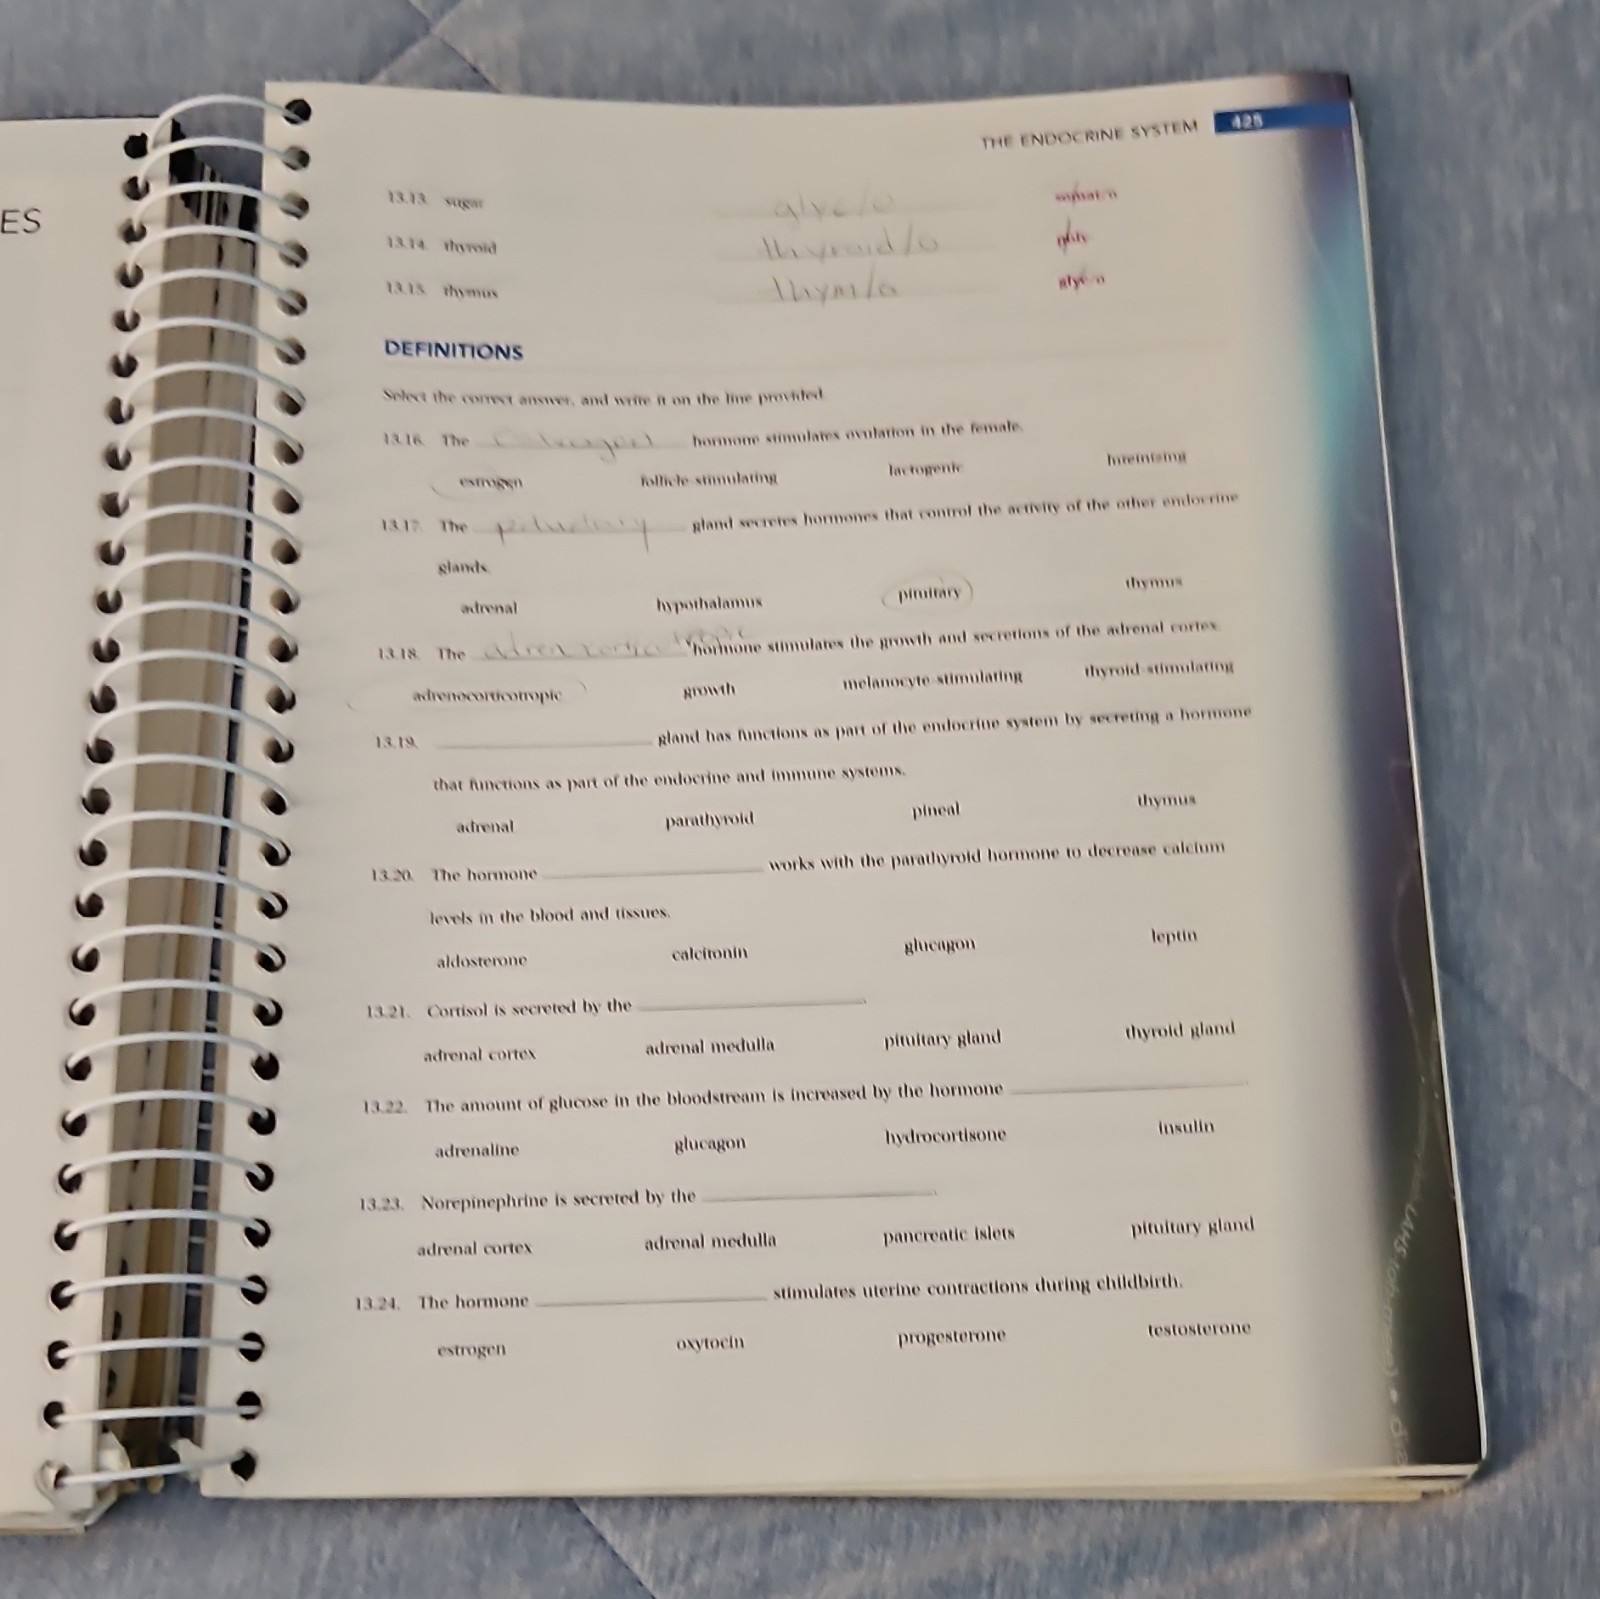 ES
THE ENDOCRINE SYSTEM 425
13.13. sugar glyc/o somat/o
13.14. thyroid thyroid/o poly-
13.15. thymus thym/o glyc/o
DEFINITIONS
Select the correct answer, and write it on the line provided.
13.16. The hormone stimulates ovulation in the female.
estrogen follicle-stimulating lactogenic luteinizing
13.17. The pituitary gland secretes hormones that control the activity of the other endocrine
glands.
adrenal hypothalamus pituitary thymus
13.18. The hormone stimulates the growth and secretions of the adrenal cortex.
adrenocorticotropic growth melanocyte-stimulating thyroid-stimulating
13.19. gland has functions as part of the endocrine system by secreting a hormone
that functions as part of the endocrine and immune systems.
adrenal parathyroid pineal thymus
13.20. The hormone works with the parathyroid hormone to decrease calcium
levels in the blood and tissues.
aldosterone calcitonin glucagon leptin
13.21. Cortisol is secreted by the .
adrenal cortex adrenal medulla pituitary gland thyroid gland
13.22. The amount of glucose in the bloodstream is increased by the hormone .
adrenaline glucagon hydrocortisone insulin
13.23. Norepinephrine is secreted by the .
adrenal cortex adrenal medulla pancreatic islets pituitary gland
13.24. The hormone stimulates uterine contractions during childbirth.
estrogen oxytocin progesterone testosterone